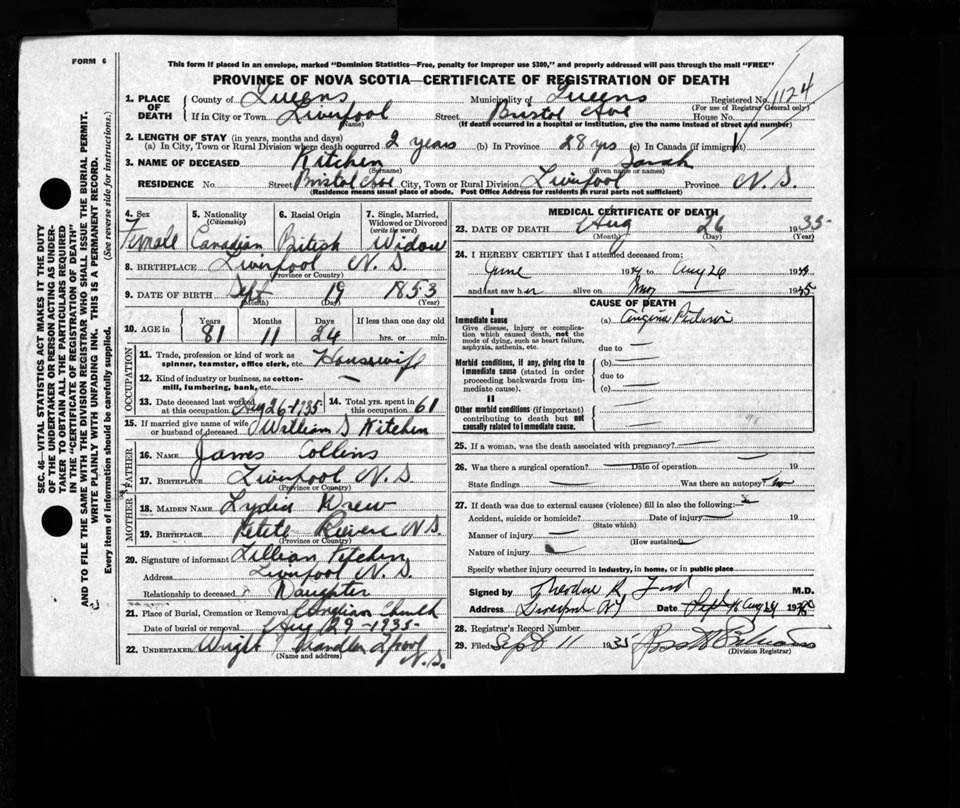 FORM 6
This form if placed in an envelope, marked "Dominion Statistics—Free, penalty for improper use $300," and properly addressed will pass through the mail "FREE"
PROVINCE OF NOVA SCOTIA—CERTIFICATE OF REGISTRATION OF DEATH
SEC. 46—VITAL STATISTICS ACT MAKES IT THE DUTY
OF THE UNDERTAKER OR PERSON ACTING AS UNDER-
TAKER TO OBTAIN ALL THE PARTICULARS REQUIRED
IN THE "CERTIFICATE OF REGISTRATION OF DEATH"
AND TO FILE THE SAME WITH THE DIVISION REGISTRAR WHO SHALL ISSUE THE BURIAL PERMIT.
WRITE PLAINLY WITH UNFADING INK. THIS IS A PERMANENT RECORD.
Every item of information should be carefully supplied. (See reverse side for instructions.)
1. PLACE OF DEATH
County of Queens Municipality of Queens Registered No. 1124
(For use of Registrar General only)
If in City or Town Liverpool Street Bristol Ave House No.
(Name) (If death occurred in a hospital or institution, give the name instead of street and number)
2. LENGTH OF STAY (in years, months and days)
(a) In City, Town or Rural Division where death occurred 2 years (b) In Province 28 yrs (c) In Canada (if immigrant)
3. NAME OF DECEASED Kitchen Sarah
(Surname) (Given name or names)
RESIDENCE No. Street Bristol Ave City, Town or Rural Division Liverpool Province N.S.
(Residence means usual place of abode. Post Office Address for residents in rural parts not sufficient)
4. Sex 5. Nationality (Citizenship) 6. Racial Origin 7. Single, Married, Widowed or Divorced (write the word)
Female Canadian British Widow
8. BIRTHPLACE Liverpool N.S.
(Province or Country)
9. DATE OF BIRTH Sept 19 1853
(Month) (Day) (Year)
10. AGE in Years Months Days If less than one day old
81 11 24 hrs. or min.
OCCUPATION
11. Trade, profession or kind of work as spinner, teamster, office clerk, etc. Housewife
12. Kind of industry or business, as cotton-mill, lumbering, bank, etc.
13. Date deceased last worked at this occupation Aug 26-1935 14. Total yrs. spent in this occupation 61
15. If married give name of wife or husband of deceased William S Kitchen
FATHER
16. NAME James Collins
17. BIRTHPLACE Liverpool N.S.
(Province or Country)
MOTHER
18. MAIDEN NAME Lydia Drew
19. BIRTHPLACE Petite Riviere N.S.
(Province or Country)
20. Signature of informant Lillian Kitchen
Address Liverpool N.S.
Relationship to deceased Daughter
21. Place of Burial, Cremation or Removal Church
Date of burial or removal Aug 29-1935-
22. UNDERTAKER Wright Chandler Lpool
(Name and address) N.S.
MEDICAL CERTIFICATE OF DEATH
23. DATE OF DEATH Aug 26 1935
(Month) (Day) (Year)
24. I HEREBY CERTIFY that I attended deceased from:
June 19 to Aug 26 19
and last saw her alive on 1935
CAUSE OF DEATH
I
Immediate cause (a) Angina Pectoris
Give disease, injury or complication which caused death, not the mode of dying, such as heart failure, asphyxia, asthenia, etc.
due to
Morbid conditions, if any, giving rise to immediate cause (stated in order proceeding backwards from immediate cause).
(b)
due to
(c)
II
Other morbid conditions (if important) contributing to death but not causally related to immediate cause.
25. If a woman, was the death associated with pregnancy?
26. Was there a surgical operation? Date of operation 19
State findings Was there an autopsy? no
27. If death was due to external causes (violence) fill in also the following:
Accident, suicide or homicide? Date of injury 19
(State which)
Manner of injury
(How sustained)
Nature of injury
Specify whether injury occurred in industry, in home, or in public place
Signed by Theodore R. Ford M.D.
Address Liverpool Date
28. Registrar's Record Number
29. Filed Sept 11 1935
(Division Registrar)